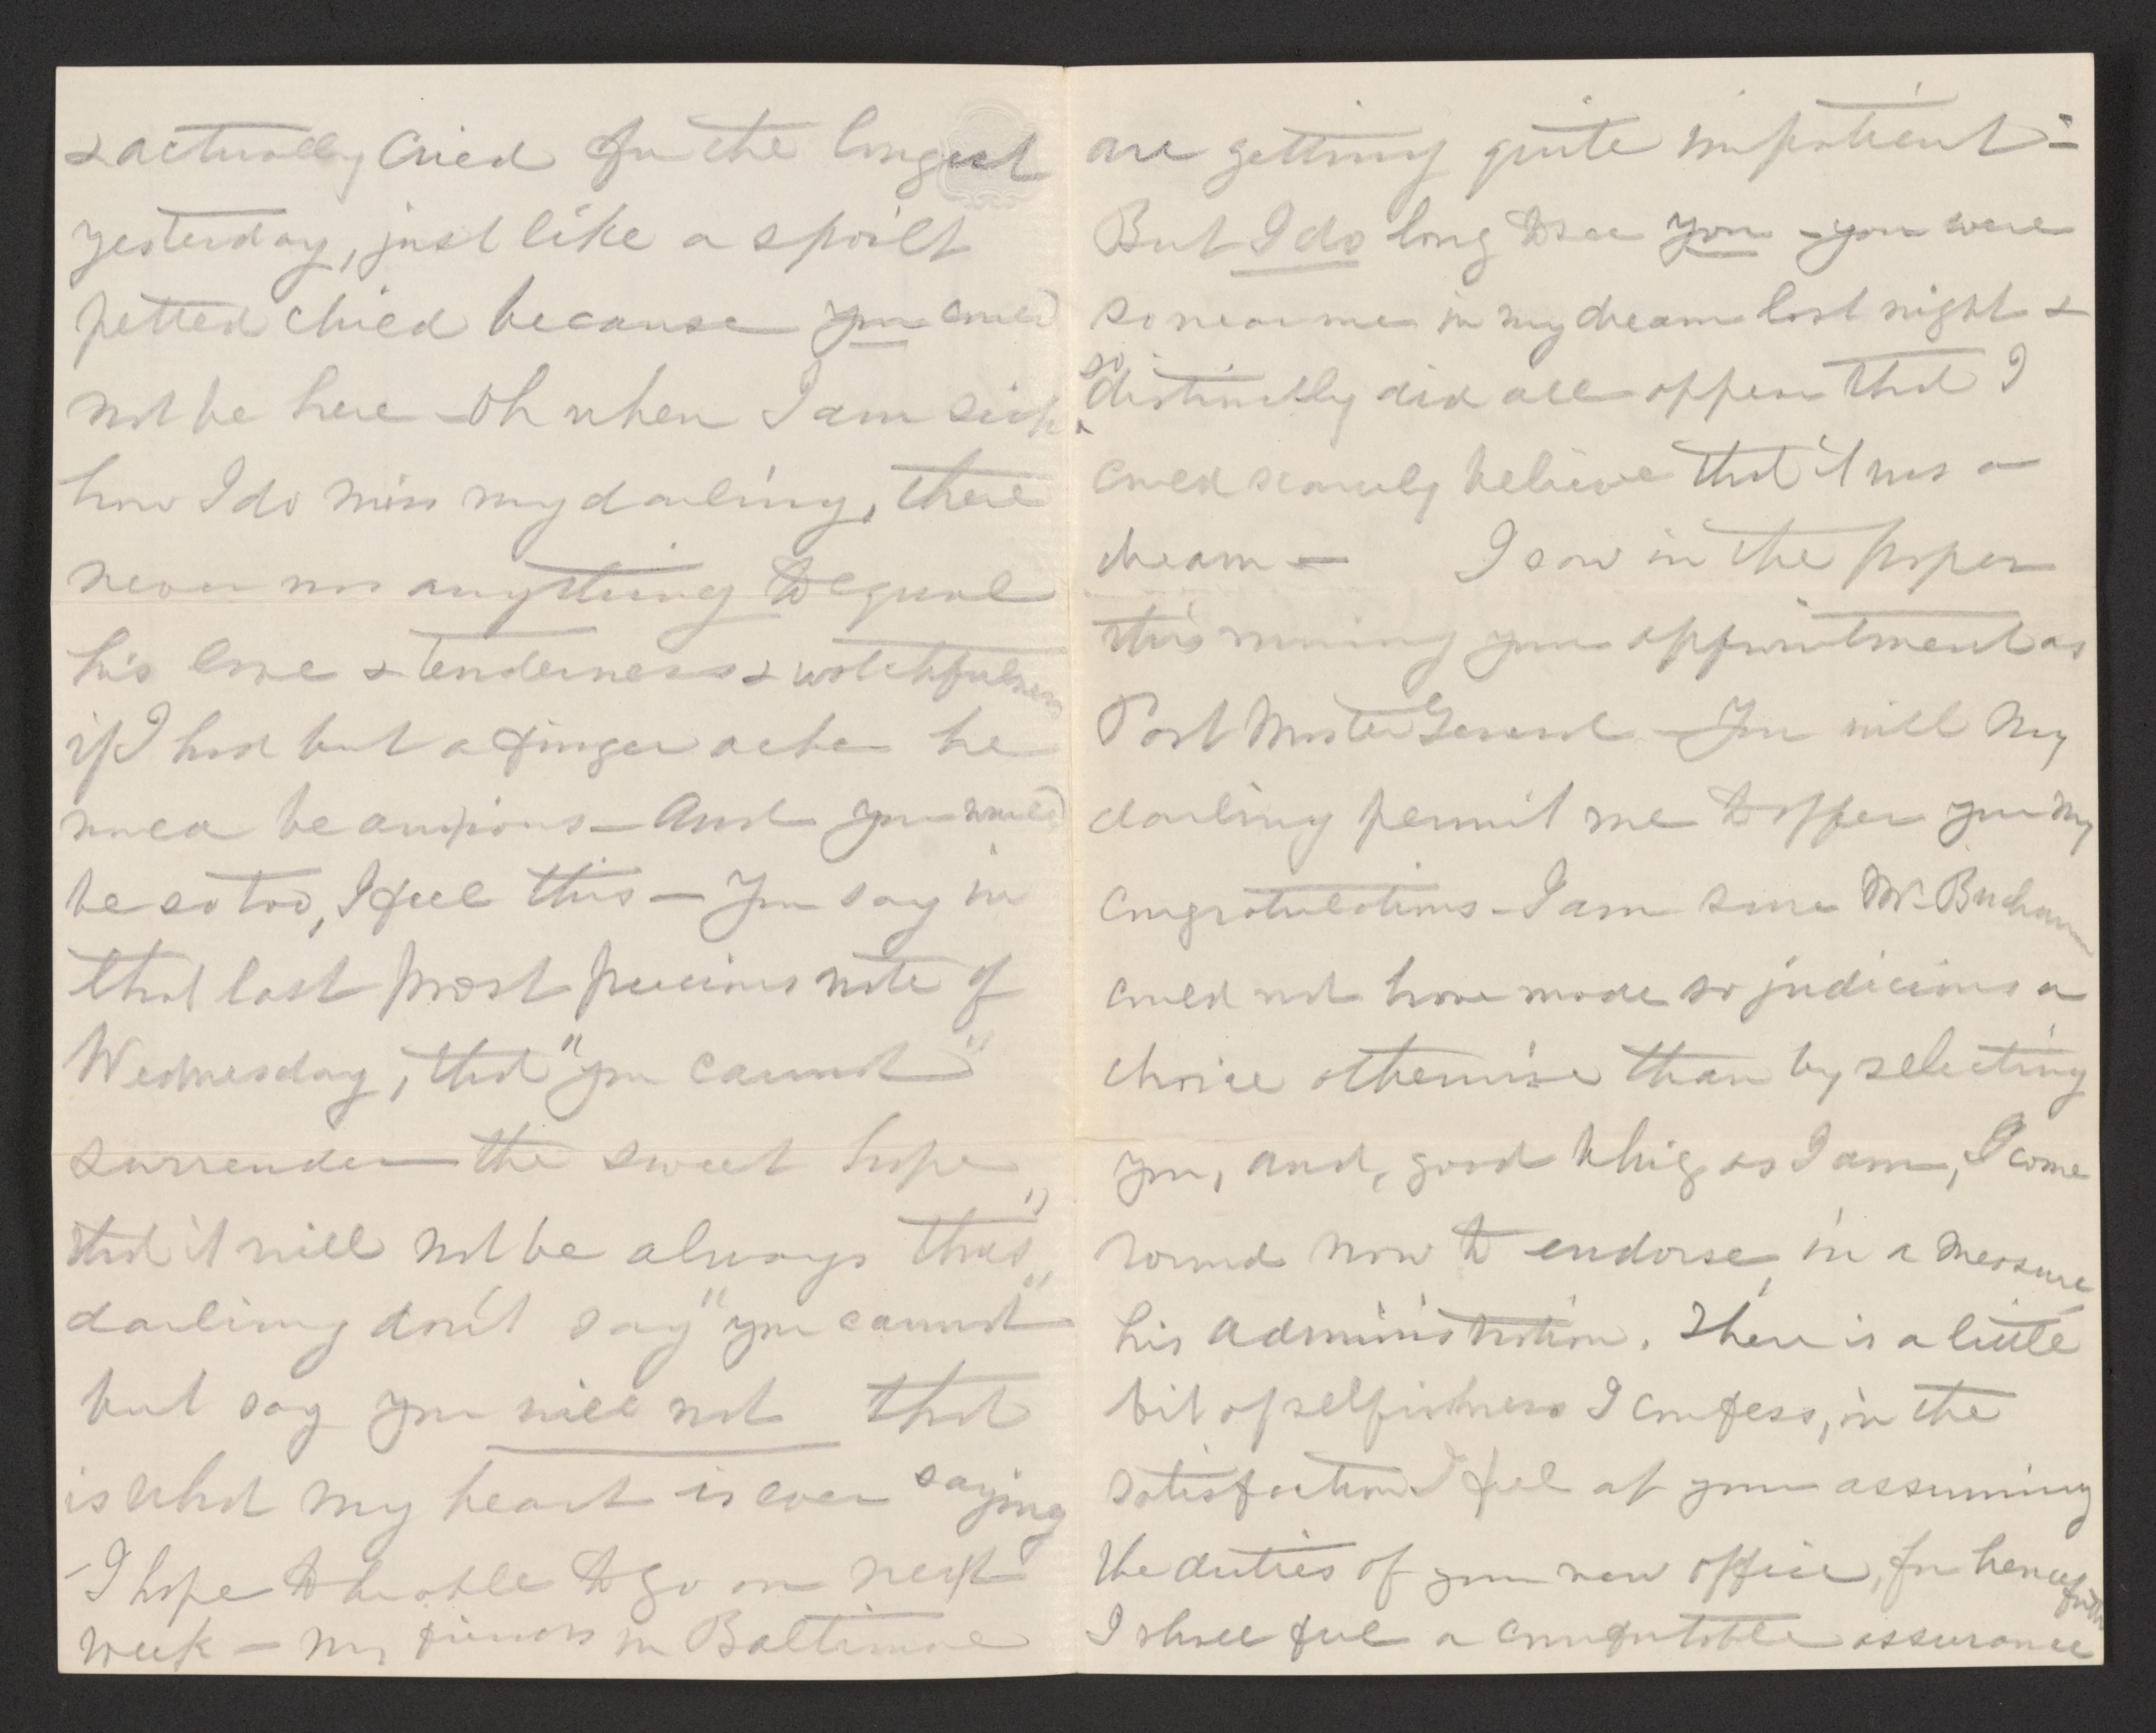 & actually cried for the longest
yesterday, just like a spoilt
petted child because you could
not be here – Oh when I am sick
how I do miss my darling, there
never was anything to equal
his love & tenderness & watchfulness
if I had but a finger ache he
would be anxious – And you would
be so too, I feel this – You say in
that last most precious note of
Wednesday, that "you cannot"
surrender the sweet hope
that it will not be always thus"
darling don't say "you cannot"
but say you will not that
is what my heart is ever saying
– I hope to be able to go on next
week – my friends in Baltimore
are getting quite impatient –
But I do long to see you – you were
so near me in my dream last night &
so distinctly did all appear that I
could scarcely believe that it was a
dream – I saw in the paper
this morning your appointment as
Post Master General – You will my
darling permit me to offer you my
congratulations – I am sure Mr. Buchanan
could not have made so judicious a
choice otherwise than by selecting
you, and, good Whig as I am, I come
round now to endorse, in a measure
his administration. There is a little
bit of selfishness I confess, in the
satisfaction I feel at your assuming
the duties of your new office, for henceforth
I shall feel a comfortable assurance